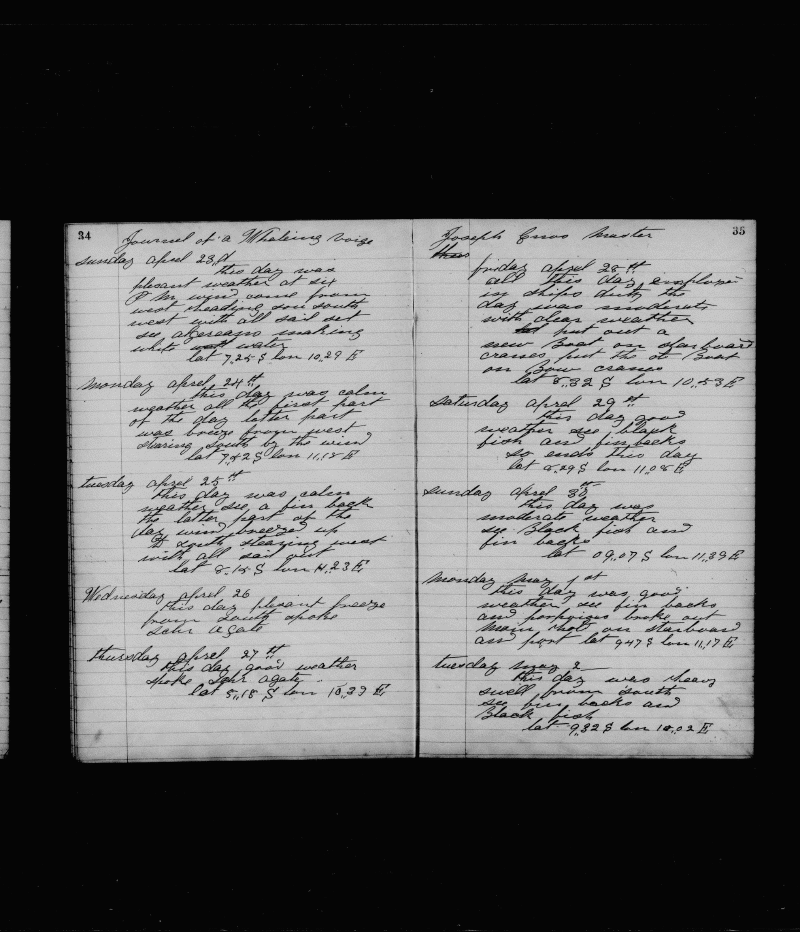 34
Journal of a Whaleing voige
sunday april 23,d
this day was
plesant weather at six
P M wind came from
west heading sou south
west with all sail set
see making
white water
lat 7,,25 S lon 10,,29 E
monday aprel 24 th,
this day was calm
weather all the first part
of the day latter part
was breeze from west
staring South by the wind
lat 7,,42 S lon 11,,18 E
tuesday aprel 25 th
this day was calm
weather see a fin back
the latter part of the
day wind breezed up
South stearing west
with all sail out
lat 8,,15 S lon 11,,23 E
Wednesday april 26
this day plesant breeze
from South spoke
Schr Agate
thursday april 27 th
this day good weather
spoke schr agate
lat 8,,18 S lon 10,,39 E
35
Joseph Enos Master
friday aprel 28 th
all this day employed
in ships duty the
day was moderate
with clear weather
put out a
new Boat on starboard
cranes put the old Boat
on Bow cranes
lat 8,,32 S lon 10,,53 E
Saturday aprel 29 th
this day good
weather see black
fish and finbacks
so ends this day
lat 8,,29 S lon 11,,08 E
Sunday aprel 30 th
this day was
moderate weather
see Black fish and
fin backs
lat 09,,07 S lon 11,,39 E
Monday may 1 st
this day was good
weather see fin backs
and porpoises broke out
main on starboard
and port lat 9 47 S lon 11,,17 E
tuesday may 2
this day was heavy
swell from south
see fin backs and
Black fish
lat 9,,32 S lon 10,,02 E